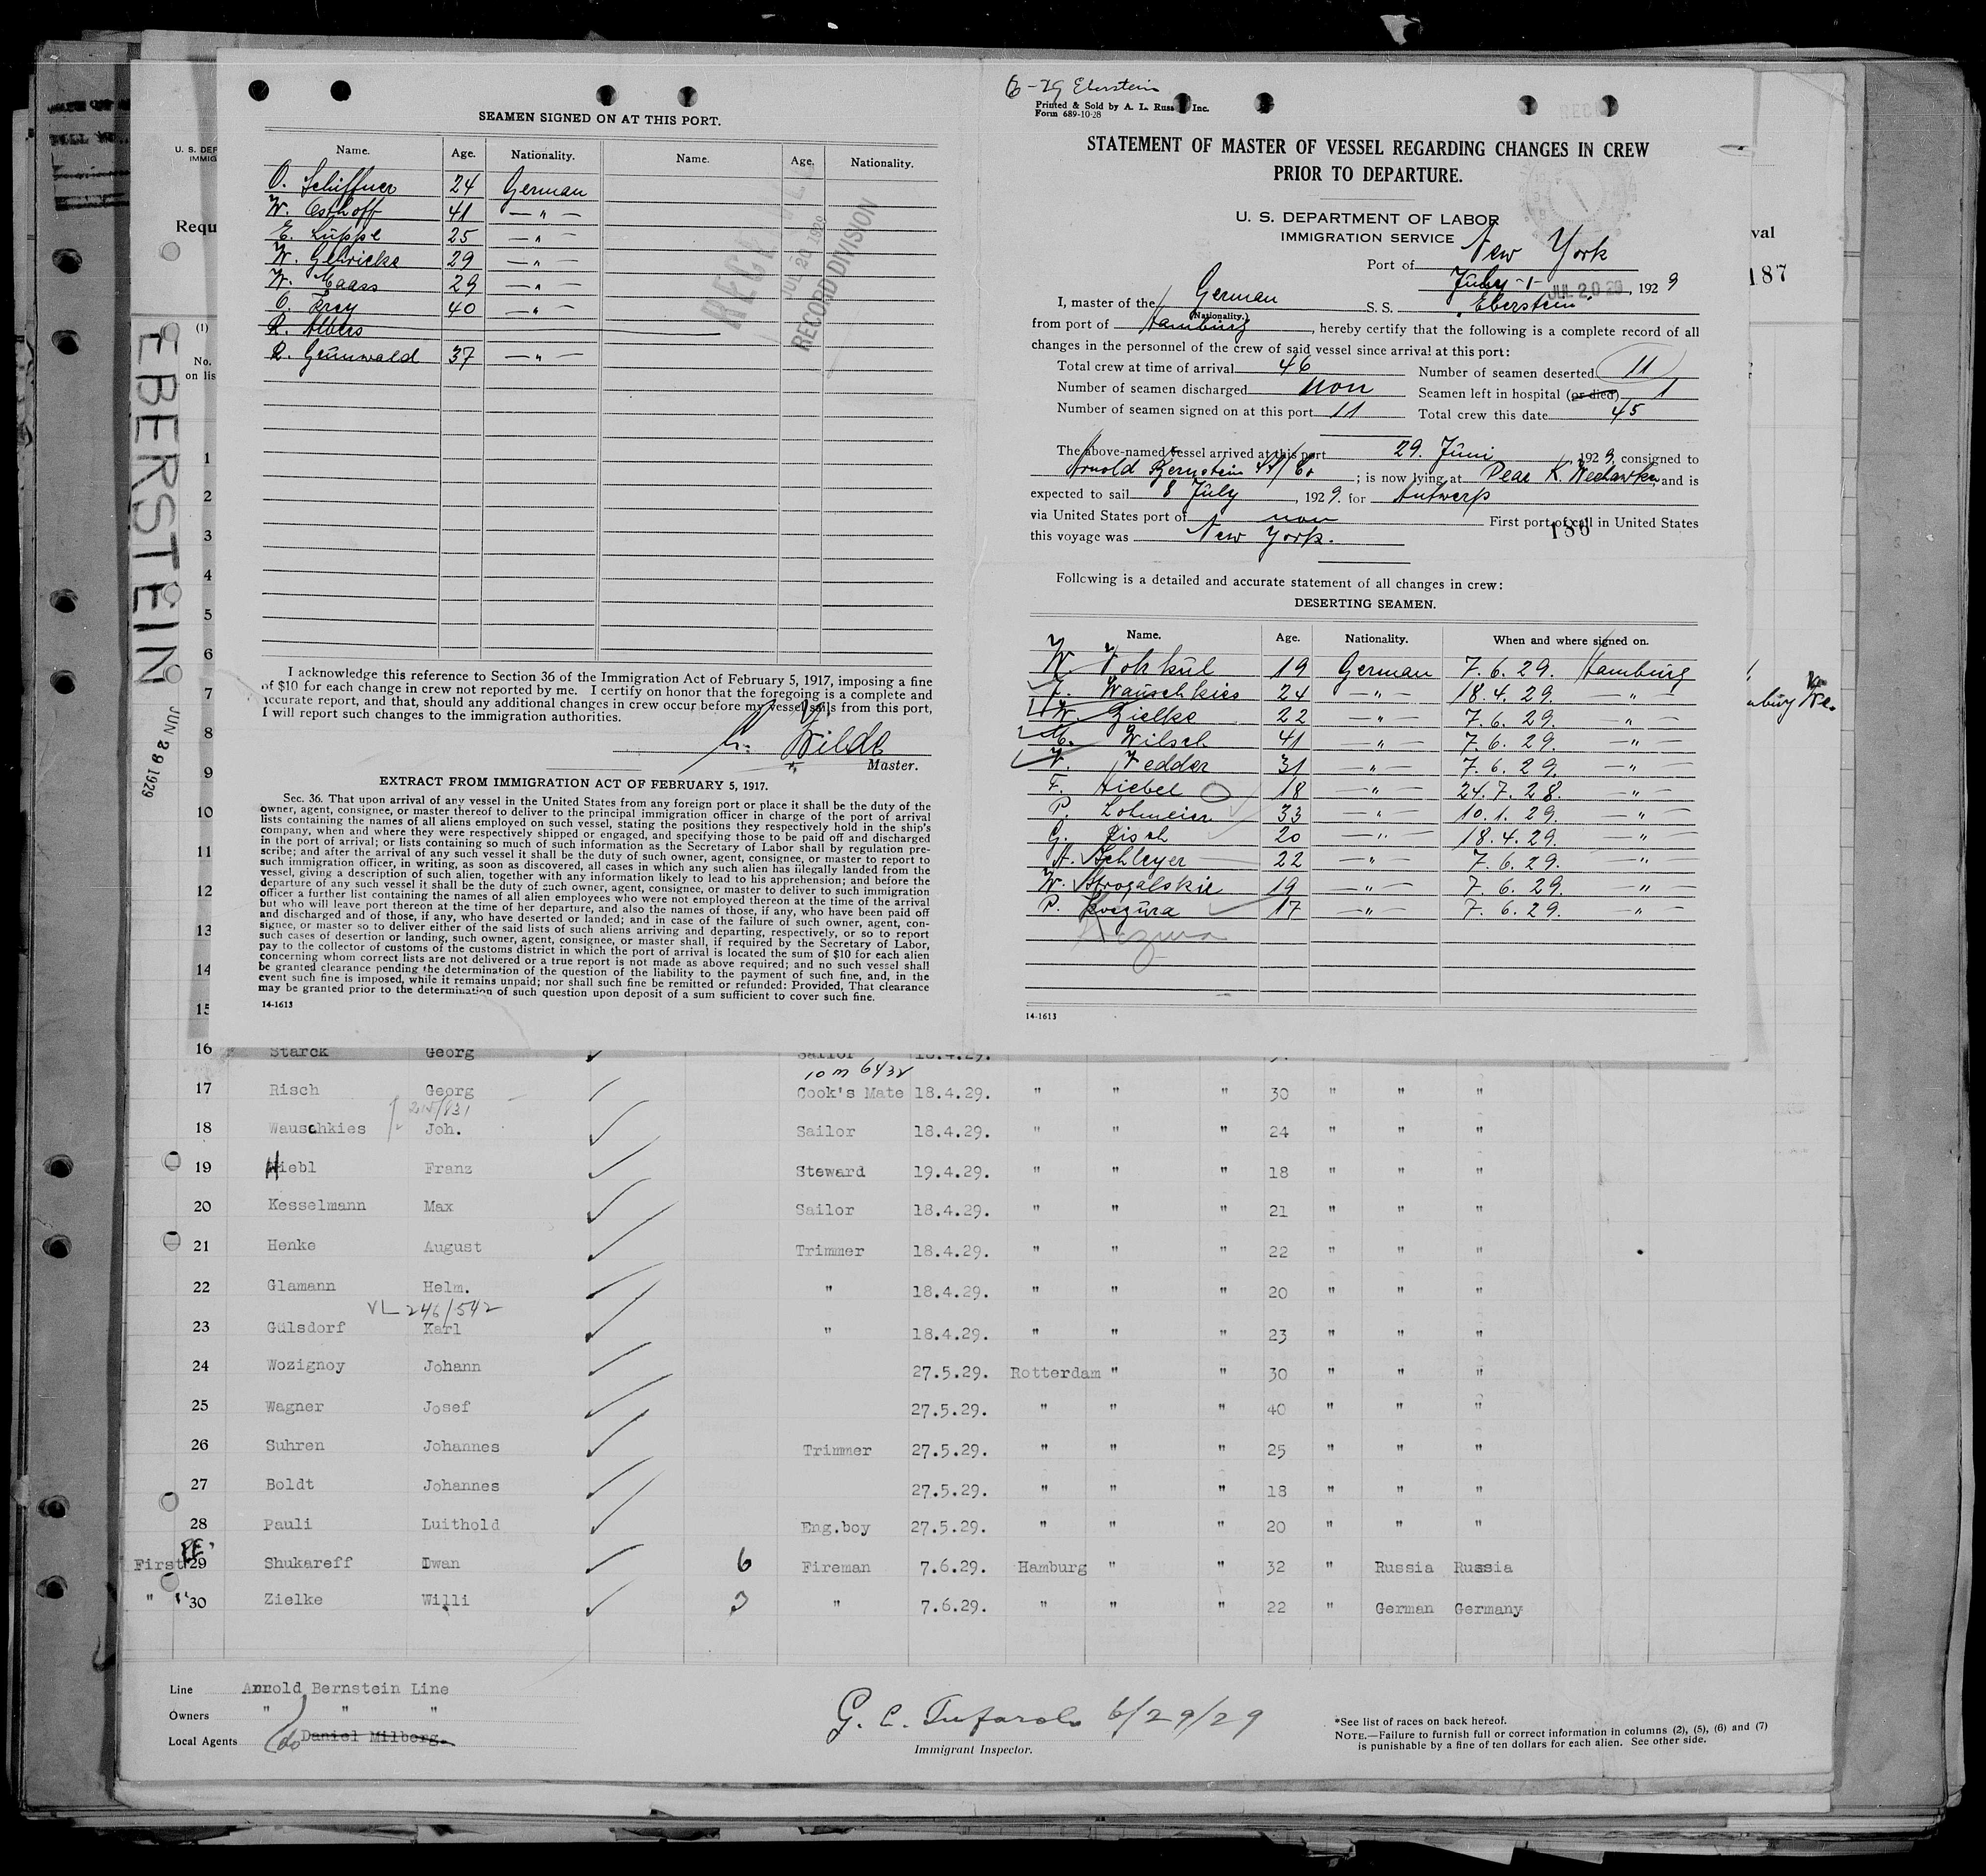 SEAMEN SIGNED ON AT THIS PORT.
Name. Age. Nationality. Name. Age. Nationality.
O. Schiffner 24 German
W. Osthoff 41 — " —
E. Lüppe 25 — " —
W. Gehricke 29 — " —
W. Maass 29 — " —
O. Frey 40 — " —
R. Albers
R. Grünwald 37 — " —
RECORD DIVISION
I acknowledge this reference to Section 36 of the Immigration Act of February 5, 1917, imposing a fine
of $10 for each change in crew not reported by me. I certify on honor that the foregoing is a complete and
accurate report, and that, should any additional changes in crew occur before my vessel sails from this port,
I will report such changes to the immigration authorities.
Wilde
Master.
EXTRACT FROM IMMIGRATION ACT OF FEBRUARY 5, 1917.
Sec. 36. That upon arrival of any vessel in the United States from any foreign port or place it shall be the duty of the
owner, agent, consignee, or master thereof to deliver to the principal immigration officer in charge of the port of arrival
lists containing the names of all aliens employed on such vessel, stating the positions they respectively hold in the ship's
company, when and where they were respectively shipped or engaged, and specifying those to be paid off and discharged
in the port of arrival; or lists containing so much of such information as the Secretary of Labor shall by regulation pre-
scribe; and after the arrival of any such vessel it shall be the duty of such owner, agent, consignee, or master to report to
such immigration officer, in writing, as soon as discovered, all cases in which any such alien has illegally landed from the
vessel, giving a description of such alien, together with any information likely to lead to his apprehension; and before the
departure of any such vessel it shall be the duty of such owner, agent, consignee, or master to deliver to such immigration
officer a further list containing the names of all alien employees who were not employed thereon at the time of the arrival
but who will leave port thereon at the time of her departure, and also the names of those, if any, who have been paid off
and discharged and of those, if any, who have deserted or landed; and in case of the failure of such owner, agent, con-
signee, or master so to deliver either of the said lists of such aliens arriving and departing, respectively, or so to report
such cases of desertion or landing, such owner, agent, consignee, or master shall, if required by the Secretary of Labor,
pay to the collector of customs of the customs district in which the port of arrival is located the sum of $10 for each alien
concerning whom correct lists are not delivered or a true report is not made as above required; and no such vessel shall
be granted clearance pending the determination of the question of the liability to the payment of such fine, and, in the
event such fine is imposed, while it remains unpaid; nor shall such fine be remitted or refunded: Provided, That clearance
may be granted prior to the determination of such question upon deposit of a sum sufficient to cover such fine.
14-1613
Eberstein
Printed & Sold by A. L. Russ Inc.
Form 689-10-28
STATEMENT OF MASTER OF VESSEL REGARDING CHANGES IN CREW
PRIOR TO DEPARTURE.
U. S. DEPARTMENT OF LABOR
IMMIGRATION SERVICE
Port of New York
July -1- JUL 20 29, 1929
I, master of the German S. S. "Eberstein"
(Nationality.)
from port of Hamburg, hereby certify that the following is a complete record of all
changes in the personnel of the crew of said vessel since arrival at this port:
Total crew at time of arrival 46 Number of seamen deserted 11
Number of seamen discharged non Seamen left in hospital (or died) 1
Number of seamen signed on at this port 11 Total crew this date 45
The above-named vessel arrived at this port 29. Juni, 1929, consigned to
Arnold Bernstein & Co; is now lying at Pear K. Weehawken, and is
expected to sail 8 July, 1929. for Antwerp
via United States port of non First port of call in United States
186
this voyage was New York.
Following is a detailed and accurate statement of all changes in crew:
DESERTING SEAMEN.
Name. Age. Nationality. When and where signed on.
W. Vohkül 19 German 7.6.29. Hamburg
J. Wauschkies 24 — " — 18.4.29. — " —
W. Zielke 22 — " — 7.6.29. — " —
Wilsch 41 — " — 7.6.29. — " —
V. Vedder 31 — " — 7.6.29. — " —
F. Hiebel 18 — " — 24.7.28. — " —
P. Lohmeier 33 — " — 10.1.29. — " —
G. Risch 20 — " — 18.4.29. — " —
A. Schleyer 22 — " — 7.6.29. — " —
W. Strogalskie 19 — " — 7.6.29. — " —
P. 17 — " — 7.6.29. — " —
14-1613
U. S. DEP
IMMIG
Requ
val
187
(1)
No.
on lis
EBERSTEIN
JUN 29 1929
1
2
3
4
5
6
7
8
9
10
11
12
13
14
15
16 Starck Georg Sailor 18.4.29.
10 m 6432
17 Risch Georg Cook's Mate 18.4.29. " " " 30 " " "
18 Wauschkies Joh. Sailor 18.4.29. " " " 24 " " "
19 Hiebl Franz Steward 19.4.29. " " " 18 " " "
20 Kesselmann Max Sailor 18.4.29. " " " 21 " " "
21 Henke August Trimmer 18.4.29. " " " 22 " " "
22 Glamann Helm. " 18.4.29. " " " 20 " " "
VL 246/542
23 Gülsdorf Karl " 18.4.29. " " " 23 " " "
24 Wozignoy Johann 27.5.29. Rotterdam " " 30 " " "
25 Wagner Josef 27.5.29. " " " 40 " " "
26 Suhren Johannes Trimmer 27.5.29. " " " 25 " " "
27 Boldt Johannes 27.5.29. " " " 18 " " "
28 Pauli Luithold Eng.boy 27.5.29. " " " 20 " " "
First 29 Shukareff Iwan 6 Fireman 7.6.29. Hamburg " " 32 " Russia Russia
" 30 Zielke Willi 3 " 7.6.29. " " " 22 " German Germany
Line Arnold Bernstein Line
Owners " " "
Local Agents do Daniel Milberg.
G. C. Tufarolo 6/29/29
Immigrant Inspector.
*See list of races on back hereof.
NOTE.—Failure to furnish full or correct information in columns (2), (5), (6) and (7)
is punishable by a fine of ten dollars for each alien. See other side.